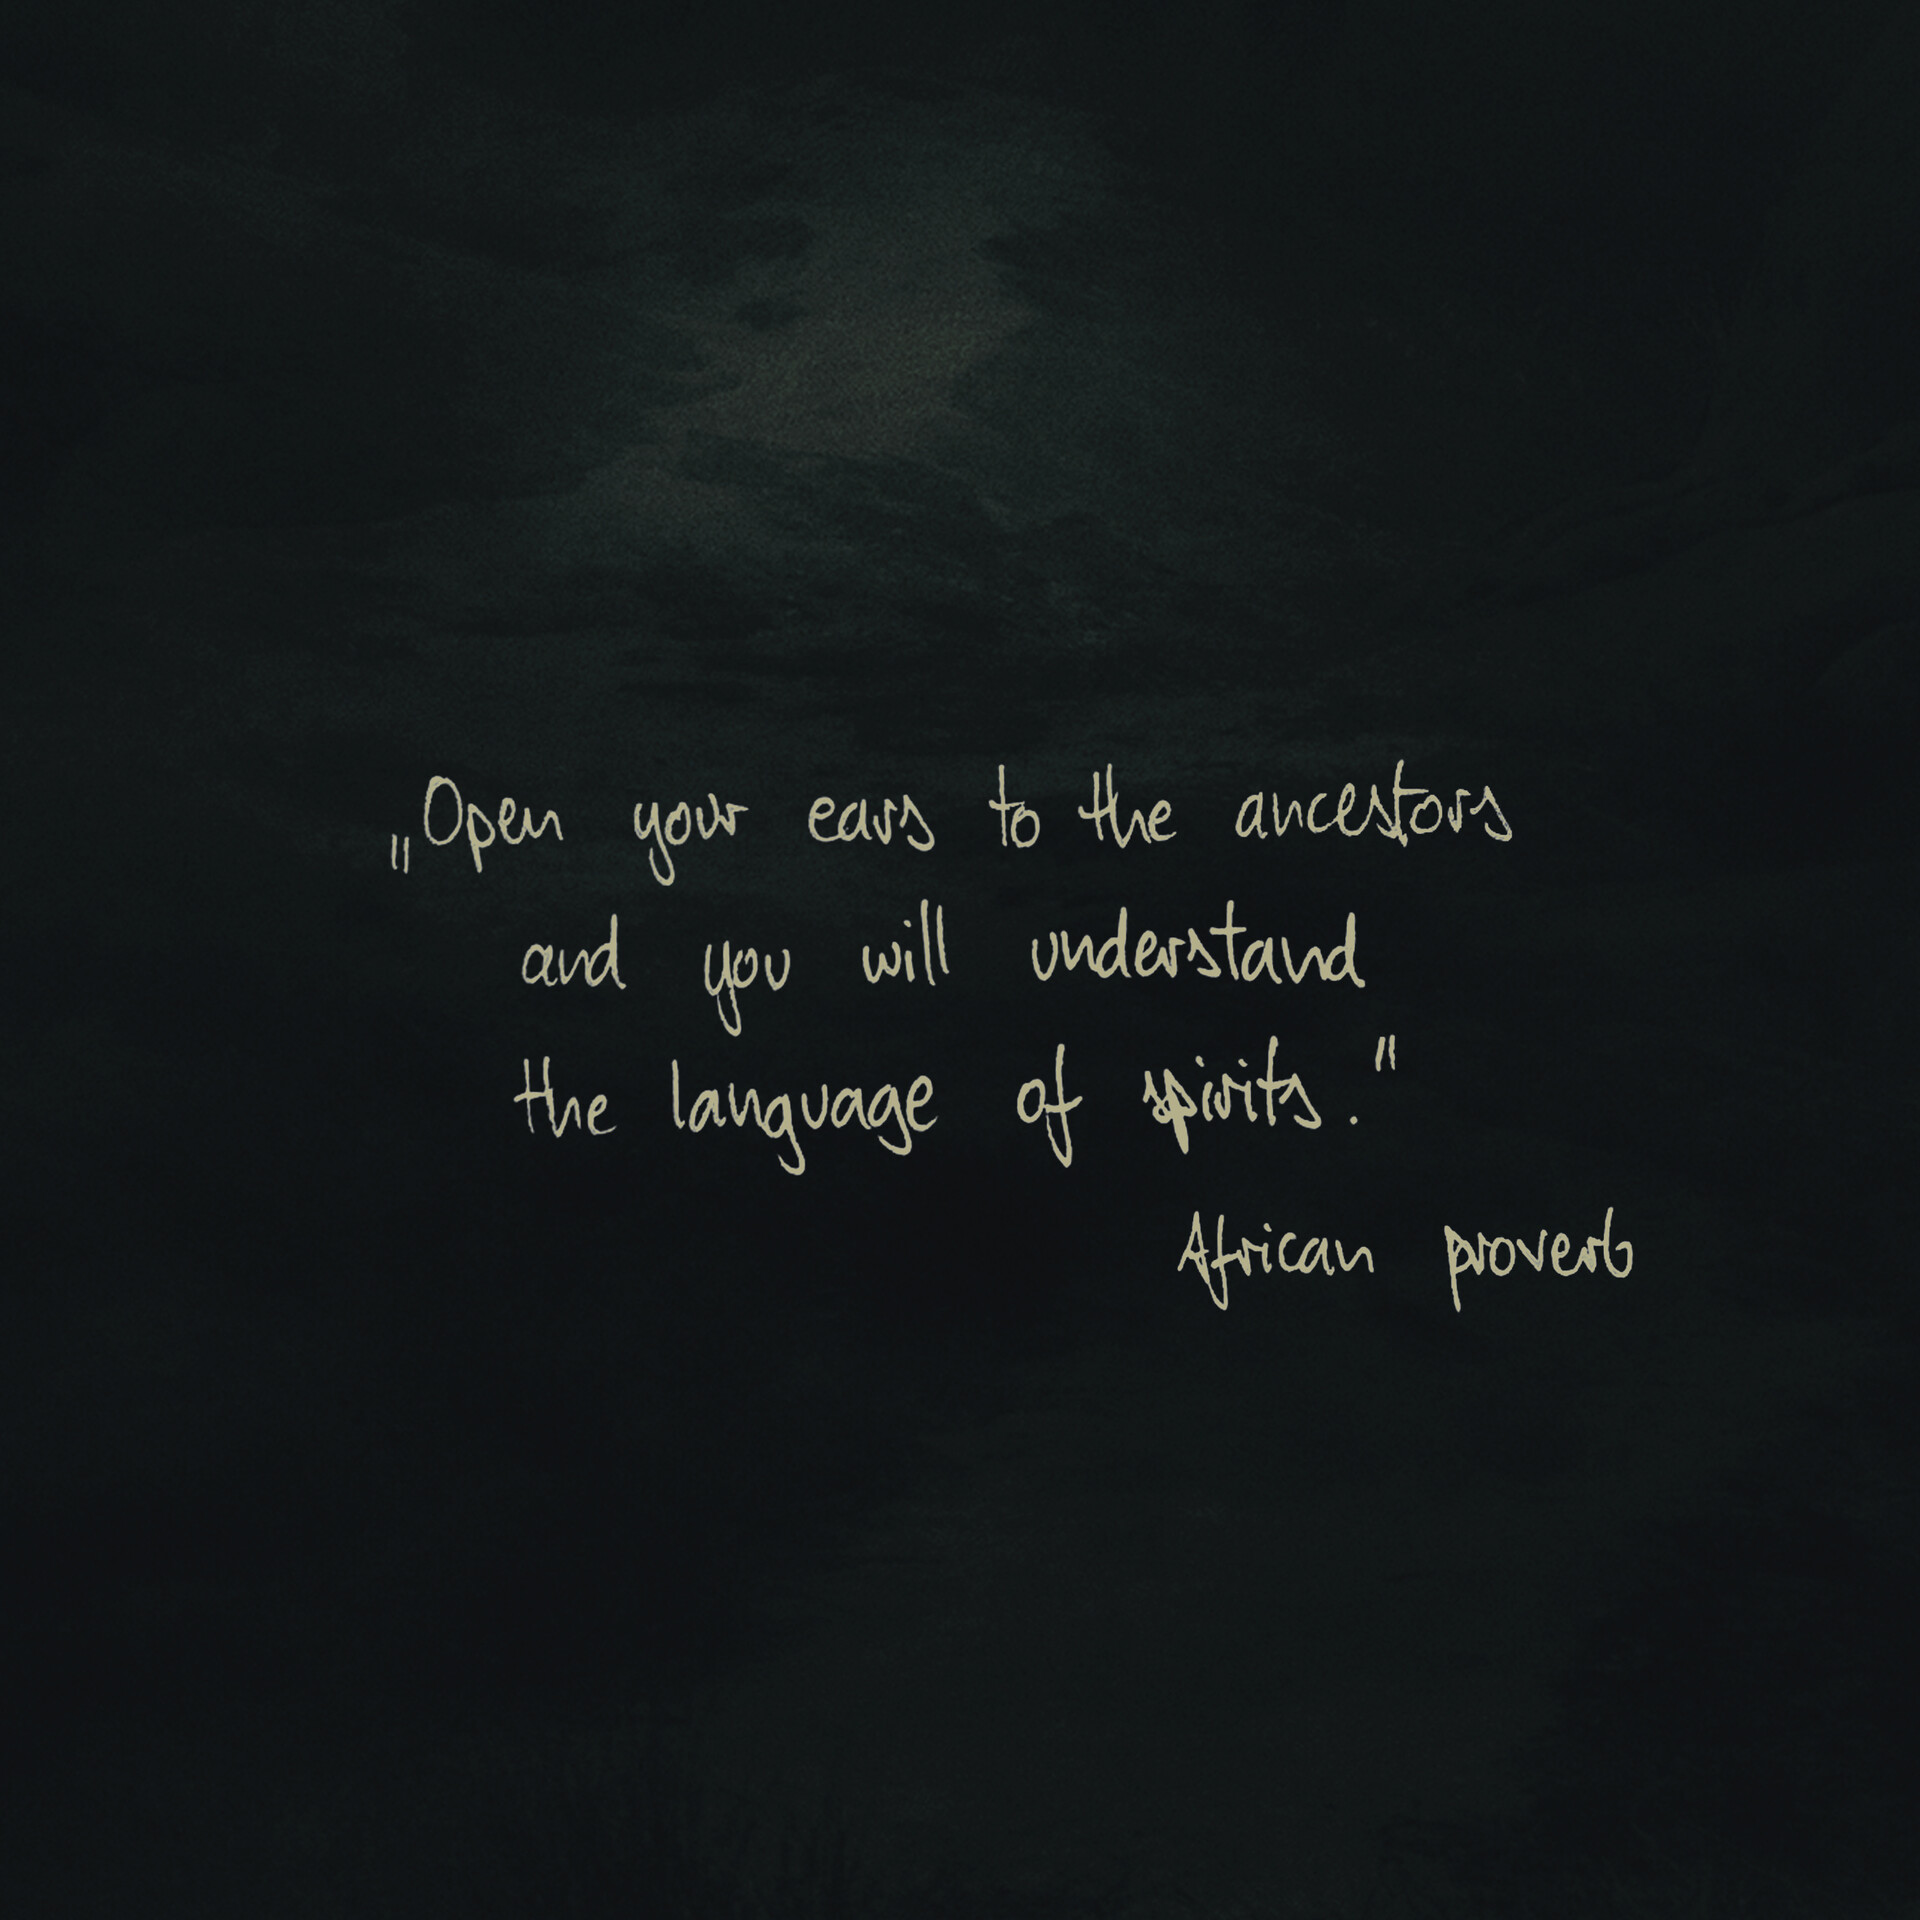 „Open your ears to the ancestors
and you will understand
the language of spirits."
African proverb